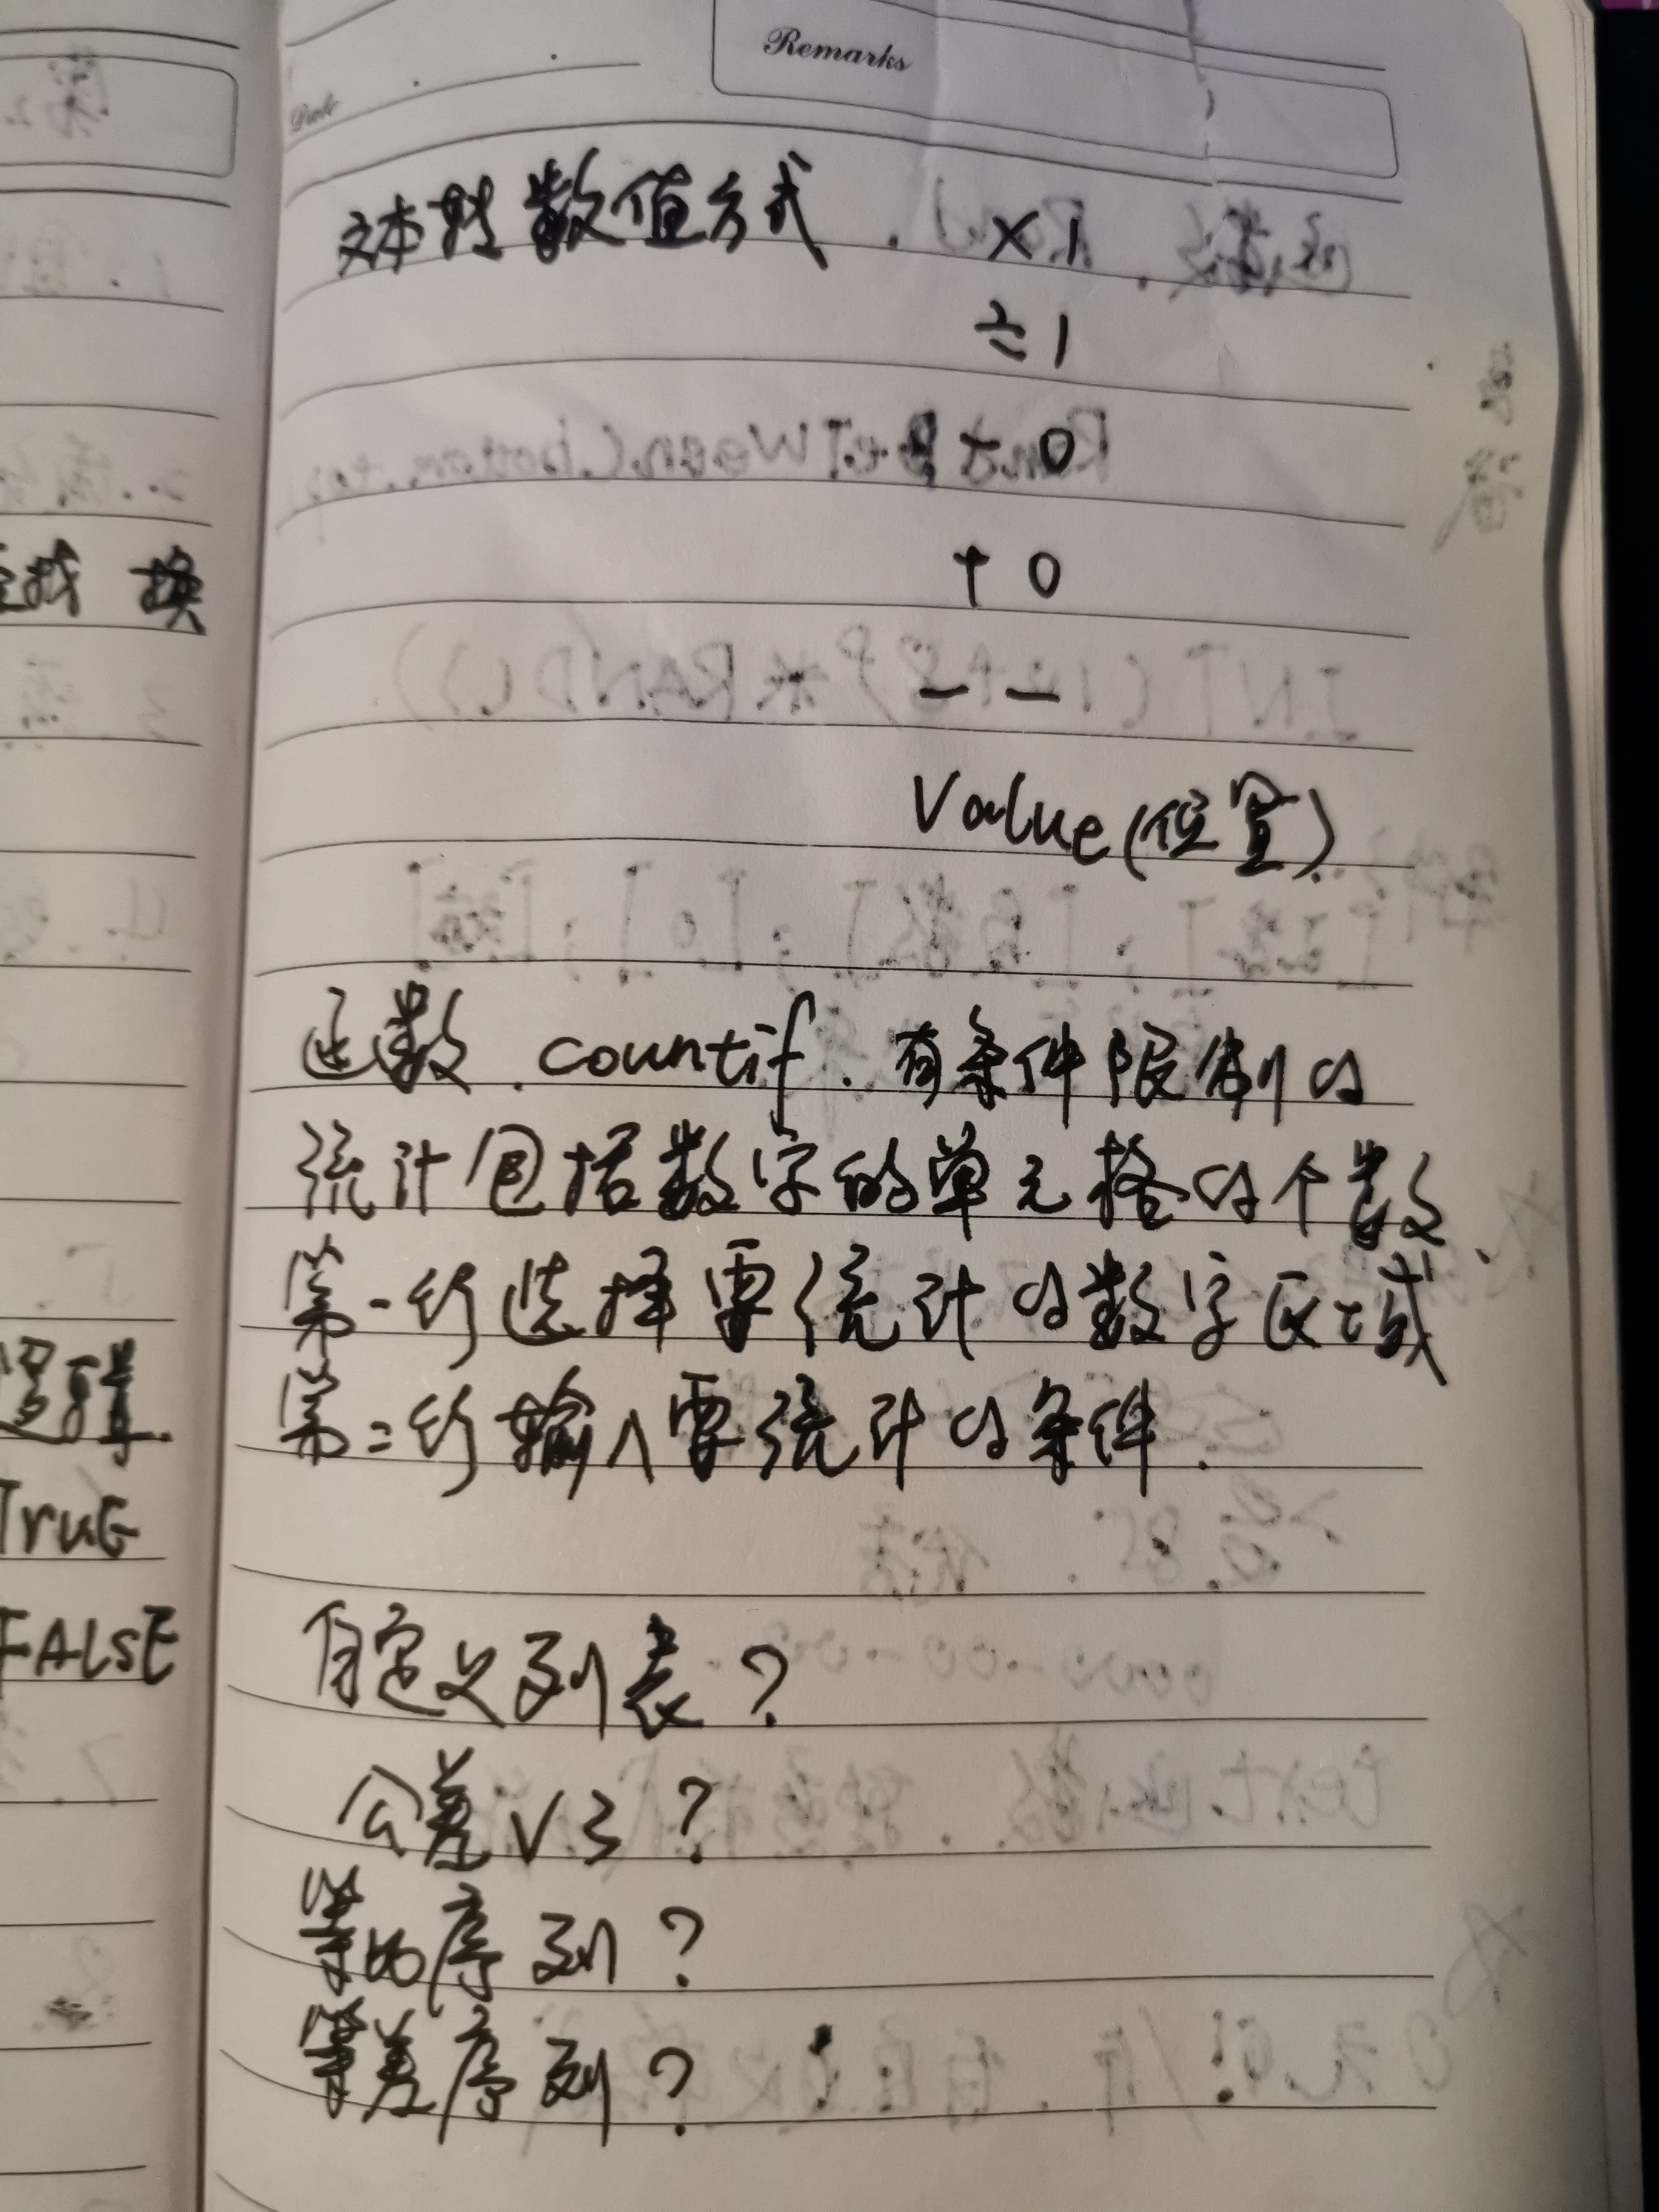 Remarks
Date
文本转数值方式. ×1
÷1
0
+0
--
Value(位置).
函数.countif.有条件限制的
统计包括数字的单元格的个数.
第一行选择要统计的数字区域
第二行输入要统计的条件.
自定义列表?
公差V3?
等比序列?
等差序列?
找 换
逻辑
TruE
FALSE